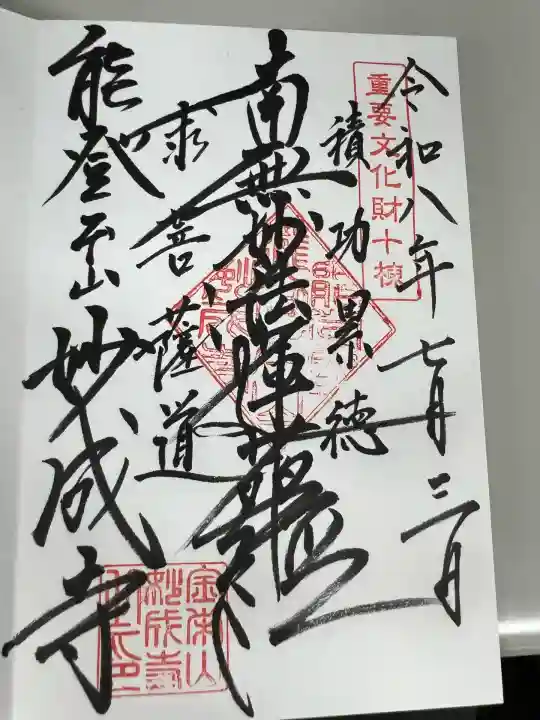 令和八年七月三日
重要文化財十棟
積功累徳
南無妙法蓮華経
求菩薩道
能登山妙成寺
金栄山
妙成寺